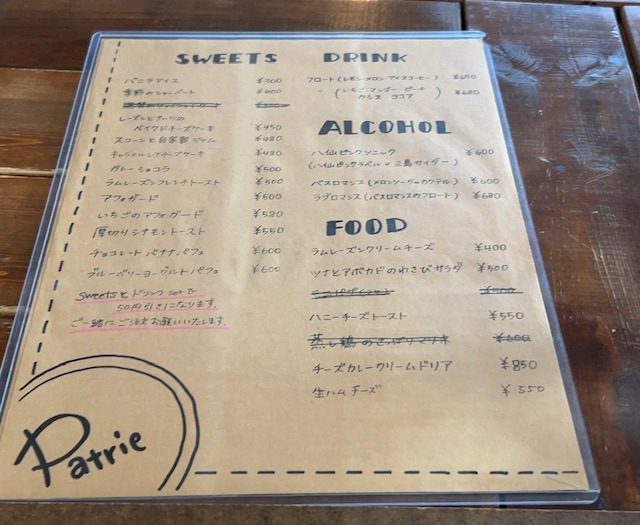 SWEETS
バニラアイス ¥300
季節のシャーベット ¥400
レーズンとナッツの
ベイクドチーズケーキ ¥450
スコーンと自家製ジャム ¥480
キャラメルレアチーズケーキ ¥480
ガトーショコラ ¥500
ラムレーズンフレンチトースト ¥500
アフォガード ¥500
いちごのアフォガード ¥530
厚切りシナモントースト ¥550
チョコレートバナナパフェ ¥600
ブルーベリーヨーグルトパフェ ¥600
Sweetsとドリンク setで
50円引きになります。
ご一緒にご注文お願いいたします。
Patrie
DRINK
フロート(レモン・メロン・アイスコーヒー) ¥650
〃 (いちご・マンゴー・ピーチ
カルピス ココア) ¥680
ALCOHOL
八仙ピンクソニック ¥600
(八仙ピンクラベル×三島サイダー)
バスロマンス(メロンソーダのカクテル) ¥600
ラブロマンス(バスロマンスのフロート) ¥680
FOOD
ラムレーズンクリームチーズ ¥400
ツナとアボカドのわさびサラダ ¥500
ハニーチーズトースト ¥550
蒸し鶏のさっぱり ¥600
チーズカレークリームドリア ¥850
生ハムチーズ ¥550